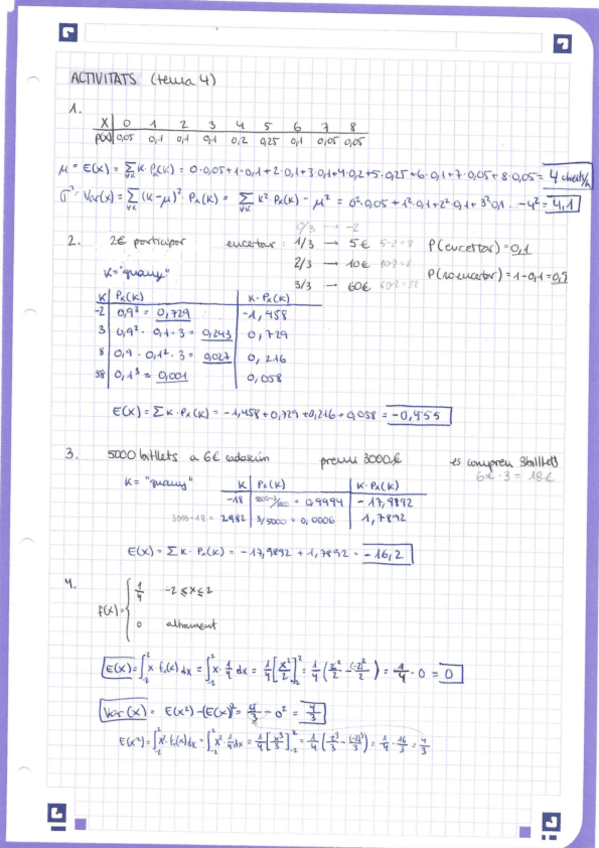 ACTIVITATS (tema 4)
1.
X 0 1 2 3 4 5 6 7 8
P(X) 0,05 0,1 0,1 0,1 0,2 0,25 0,1 0,05 0,05
μ = E(X) = Σ∀k K·Pₓ(K) = 0·0,05+1·0,1+2·0,1+3·0,1+4·0,2+5·0,25+6·0,1+7·0,05+8·0,05 = 4
σ² = Var(X) = Σ∀k (K-μ)²·Pₓ(K) = Σ∀k K²·Pₓ(K) - μ² = 0²·0,05+1²·0,1+2²·0,1+3²·0,1... -4² = 4,1
0/3 → -2
2. 2€ participar encertar: 1/3 → 5€ 5-2=3 P(encertar) = 0,1
2/3 → 10€ 10-2=8
K = "guany" 3/3 → 60€ 60-2=58 P(no encertar) = 1-0,1 = 0,9
K Pₓ(K) K·Pₓ(K)
-2 0,9³ = 0,729 -1,458
3 0,9²·0,1·3 = 0,243 0,729
8 0,9·0,1²·3 = 0,027 0,216
58 0,1³ = 0,001 0,058
E(X) = Σ K·Pₓ(K) = -1,458+0,729+0,216+0,058 = -0,455
3. 5000 bitllets a 6€ cadascún premi 3000€ es compren 3 bitllets
6€·3 = 18€
K = "guany" K Pₓ(K) K·Pₓ(K)
-18 5000-3/5000 = 0,9994 -17,9892
3000-18 = 2982 3/5000 = 0,0006 1,7892
E(X) = Σ K·Pₓ(K) = -17,9892 + 1,7892 = -16,2
4.
f(x) = { 1/4 -2 ≤ x ≤ 2
0 altrament
E(X) = ∫₋₂² x·fₓ(x)dx = ∫₋₂² x·1/4 dx = 1/4 [x²/2]₋₂² = 1/4 (2²/2 - (-2)²/2) = 1/4·0 = 0
Var(X) = E(X²)-(E(X))² = 4/3 - 0² = 4/3
E(X²) = ∫₋₂² x²·fₓ(x)dx = ∫₋₂² x²·1/4 dx = 1/4 [x³/3]₋₂² = 1/4 (2³/3 - (-2)³/3) = 1/4·16/3 = 4/3